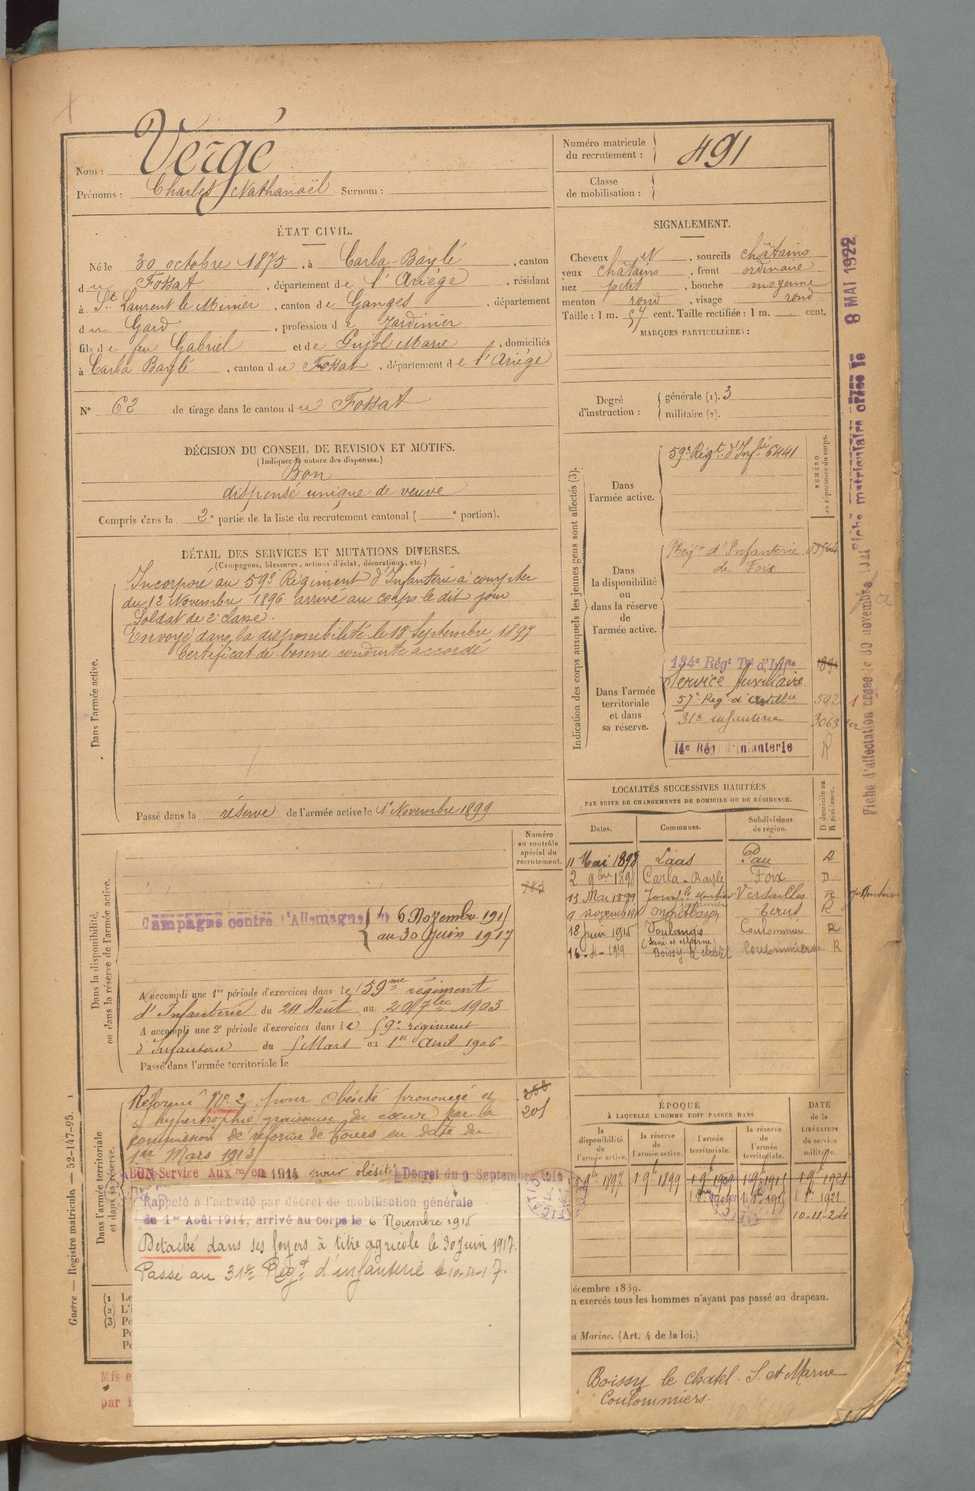 Nom : Vergé
Prénoms : Charles Nathanaël Surnom :
Numéro matricule du recrutement : 491
Classe de mobilisation :
ÉTAT CIVIL.
Né le 30 octobre 1875, à Carla-Baylé, canton
du Fossat, département de l'Ariége, résidant
à St Laurent le Minier, canton de Ganges, département
du Gard, profession de Jardinier
fils de feu Gabriel et de Pujol Marie, domiciliés
à Carla Baylé, canton du Fossat, département de l'Ariége
N° 62 de tirage dans le canton du Fossat
SIGNALEMENT.
Cheveux et, sourcils châtains
yeux châtains, front ordinaire
nez petit, bouche moyenne
menton rond, visage rond
Taille : 1 m. 57 cent. Taille rectifiée : 1 m. cent.
MARQUES PARTICULIÈRES :
Degré d'instruction : générale (1). 3
militaire (2).
DÉCISION DU CONSEIL DE REVISION ET MOTIFS.
(Indiquer la nature des dispenses.)
Bon
dispensé unique de veuve
Compris dans la 2e partie de la liste du recrutement cantonal ( e portion).
DÉTAIL DES SERVICES ET MUTATIONS DIVERSES.
(Campagnes, blessures, actions d'éclat, décorations, etc.)
Dans l'armée active.
Incorporé au 59e Régiment d'Infanterie à compter
du 12 Novembre 1896 arrivé au corps le dit jour
Soldat de 2e classe.
Envoyé dans la disponibilité le 18 Septembre 1897
Certificat de bonne conduite accordé
Passé dans la réserve de l'armée active le 1er Novembre 1899
Indication des corps auxquels les jeunes gens sont affectés (3).
NUMÉRO
Dans l'armée active.
59e Regt d'Infie 6441
Dans la disponibilité ou dans la réserve de l'armée active.
Regt d'Infanterie
de Foix
Dans l'armée territoriale et dans sa réserve.
134e Rég Tal d'Infie
Service Auxiliaire
57e Reg. d'Artillie 592
31e infanterie 3063
14e Rég d'Infanterie R
LOCALITÉS SUCCESSIVES HABITÉES
PAR SUITE DE CHANGEMENTS DE DOMICILE OU DE RÉSIDENCE.
Dates. Communes. Subdivisions de région. D domicile ou R résidence.
11 Mai 1898 Laas Pau R
2 9bre 1898 Carla-Bayle Foix D
13 Mai 1899 Versailles R
9 novembre R
18 juin 1915 Coulommiers R
(Seine et Marne)
16-4-1919 Boissy le chatel Coulommiers R
Dans la disponibilité, ou dans la réserve de l'armée active.
Numéro au contrôle spécial du recrutement.
Campagne contre l'Allemagne, du 6 Novembre 1915
au 30 Juin 1917
A accompli une 1re période d'exercices dans le 59me régiment
d'Infanterie du 24 Août au 20 7bre 1903
A accompli une 2e période d'exercices dans le 59e régiment
d'Infanterie du 5 Mars au 1er Avril 1906
Passé dans l'armée territoriale le
Dans l'armée territoriale et dans sa réserve.
Réformé N° 2 pour obésité prononcée et
hypertrophie graisseuse du cœur par la
commission de réforme de Tours en date du
1er Mars 1913
201
BON Service Auxre en 1914 pour obésité Décret du 9 Septembre 1914
Rappelé à l'activité par décret de mobilisation générale
du 1er Août 1914, arrivé au corps le 6 Novembre 1915
Détaché dans ses foyers à titre agricole le 30 Juin 1917.
Passé au 31e Régt d'infanterie le
ÉPOQUE
À LAQUELLE L'HOMME DOIT PASSER DANS
la disponibilité de l'armée active.
la réserve de l'armée active.
l'armée territoriale.
la réserve de l'armée territoriale.
DATE de la LIBÉRATION du service militaire.
1 9bre 1899
10-11-24
décembre 1889.
n exercés tous les hommes n'ayant pas passé au drapeau.
a Marine. (Art. 4 de la loi.)
Boissy le chatel. S. et Marne
Coulommiers.
Mis e
par l
Guerre — Registre matricule. — 52-147-95.
Fiche matriculaire créée le 8 MAI 1922
Fiche d'affectation créée le 30 novembre